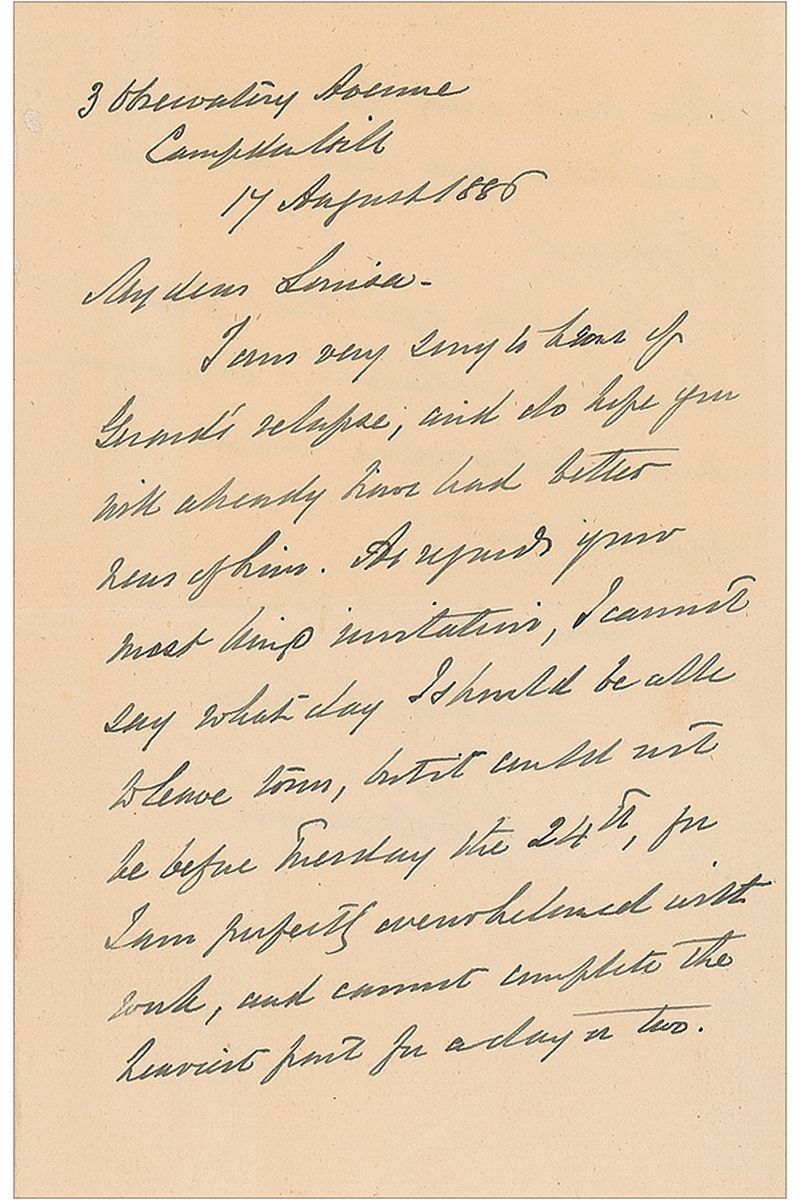 3 Observatory Avenue
Campden Hill
17 August 1886
My dear Louisa -
I am very sorry to hear of
Gerard's relapse, and do hope you
will already have had better
news of him. As regards your
most kind invitation, I cannot
say what day I should be able
to leave town, but it could not
be before Tuesday the 24th, for
I am perfectly overwhelmed with
work, and cannot complete the
heaviest part for a day or two.